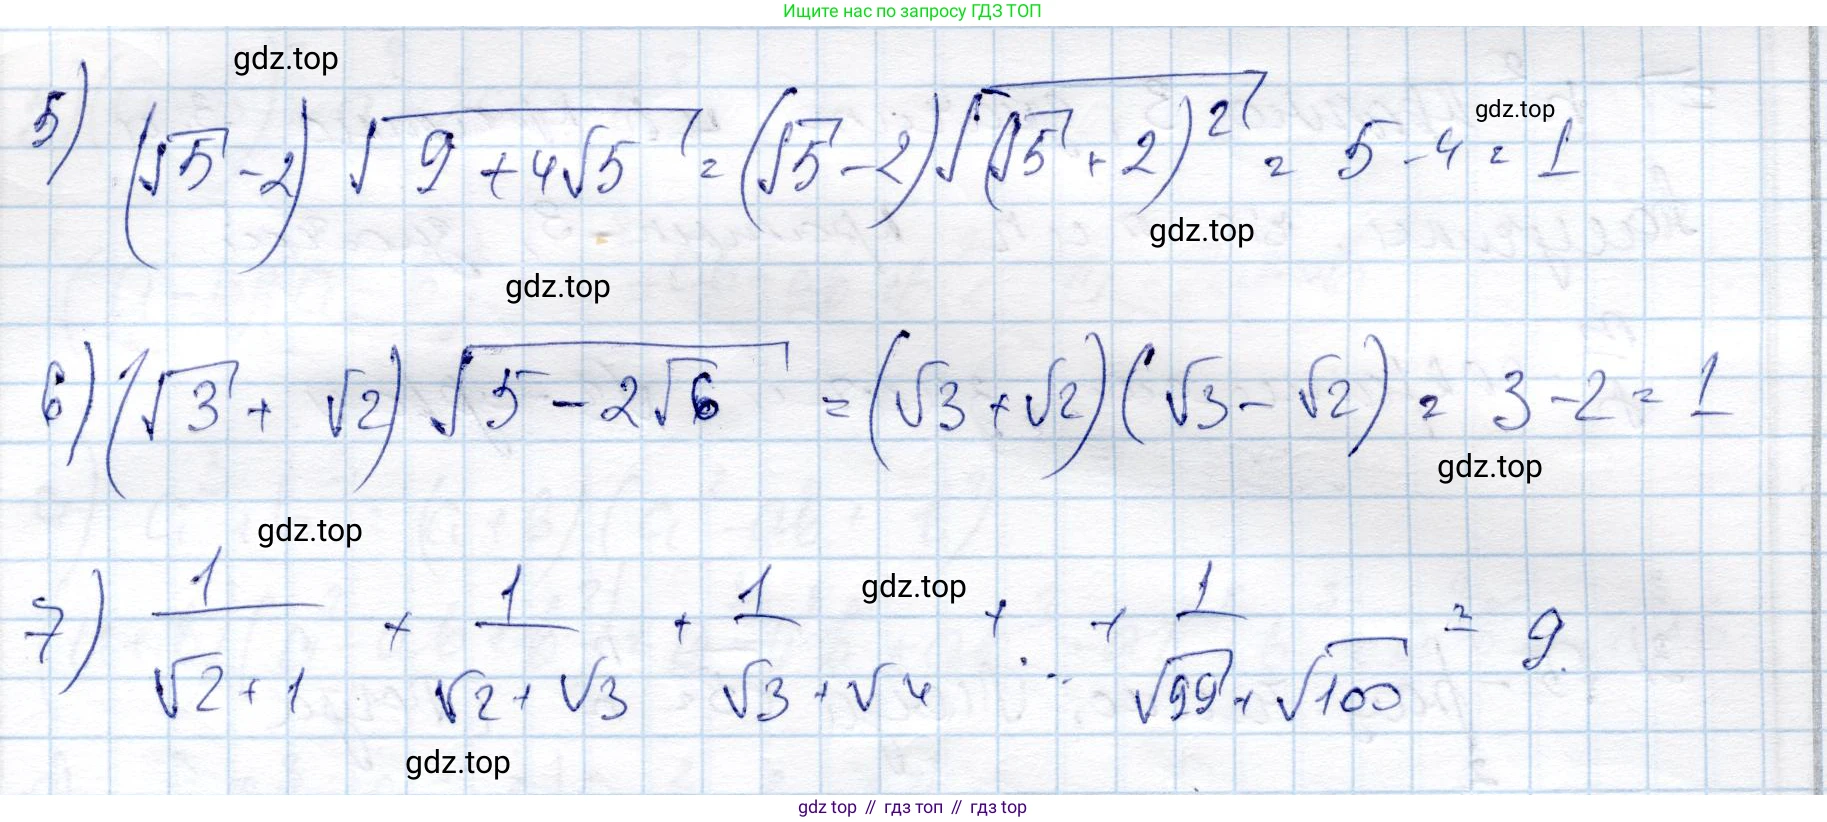 Ищите нас по запросу ГДЗ ТОП
gdz.top
5) (√5 - 2) √(9 + 4√5) = (√5 - 2) √((√5 + 2)²) = 5 - 4 = 1
gdz.top
gdz.top
gdz.top
6) (√3 + √2) √(5 - 2√6) = (√3 + √2) (√3 - √2) = 3 - 2 = 1
gdz.top
gdz.top
gdz.top
7) 1/(√2 + 1) + 1/(√2 + √3) + 1/(√3 + √4) + ... + 1/(√99 + √100) = 9.
gdz.top
gdz top // гдз топ // гдз top